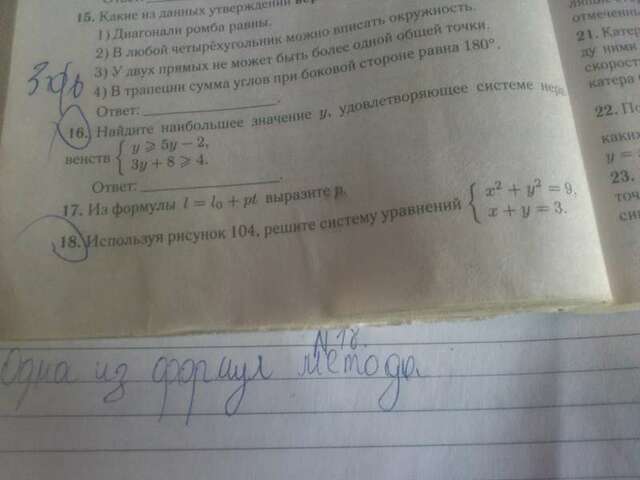 Ответ:
15. Какие из данных утверждений
1) Диагонали ромба равны.
2) В любой четырёхугольник можно вписать окружность.
3) У двух прямых не может быть более одной общей точки.
4) В трапеции сумма углов при боковой стороне равна 180°.
Ответ:
16. Найдите наибольшее значение y, удовлетворяющее системе нера
венств { y ⩾ 5y − 2,
3y + 8 ⩾ 4.
Ответ:
17. Из формулы l = l₀ + pt выразите p.
18. Используя рисунок 104, решите систему уравнений { x² + y² = 9,
x + y = 3.
отмечен
21. Катер
ду ними
скорост
катера
22. По
каких
y =
23.
точ
си
N 18.
Одна из формул метода